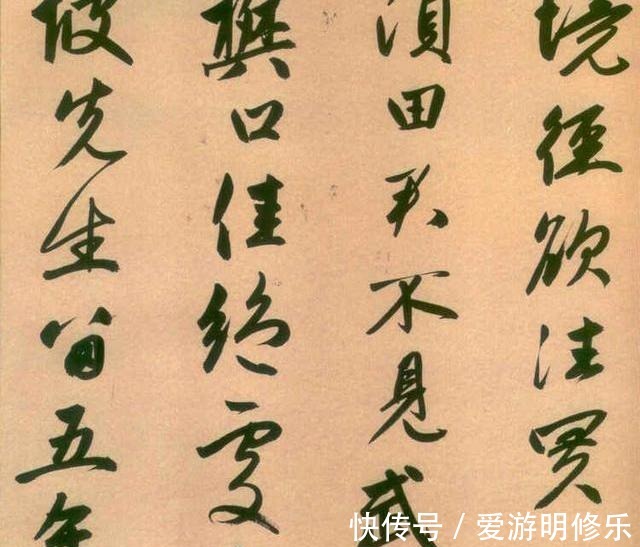 境徑欲往買
頃田君不見武
樊口佳絕處
坡先生留五年
快传号 / 爱游明修乐